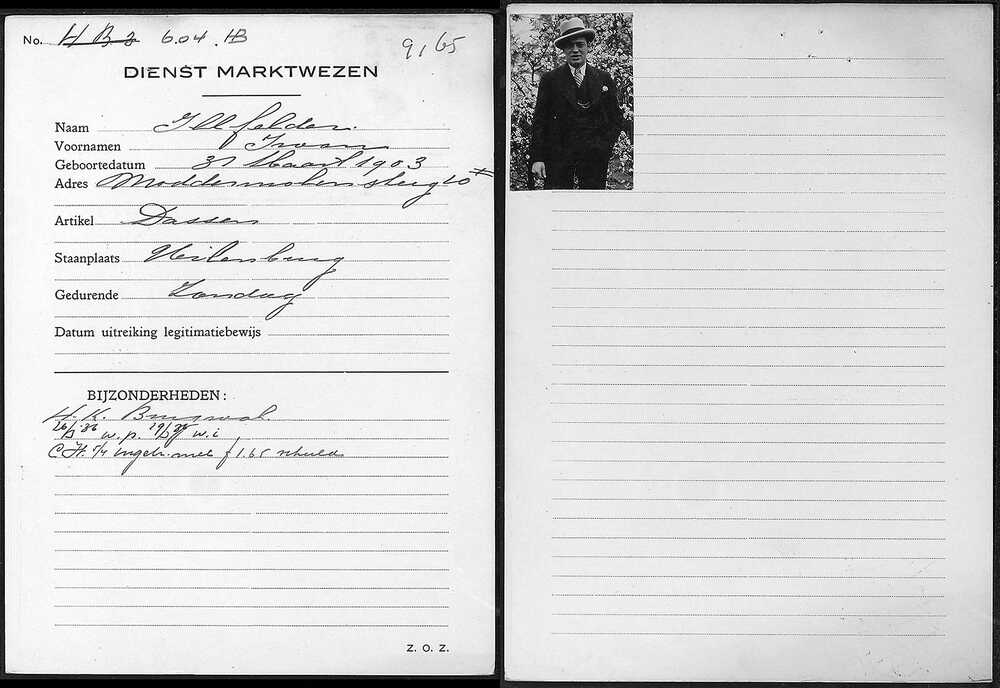 No. H B 2 604 HB
9165
DIENST MARKTWEZEN
Naam Illfelder
Voornamen Iwan
Geboortedatum 31 Maart 1903
Adres Moddermolensteeg 10 II
Artikel Dassen
Staanplaats Uilenburg
Gedurende Zondag
Datum uitreiking legitimatiebewijs
BIJZONDERHEDEN:
H. K.
w.p. w.i
C.H. 5/4 ingetr. met f 1.65 schuld
Z. O. Z.